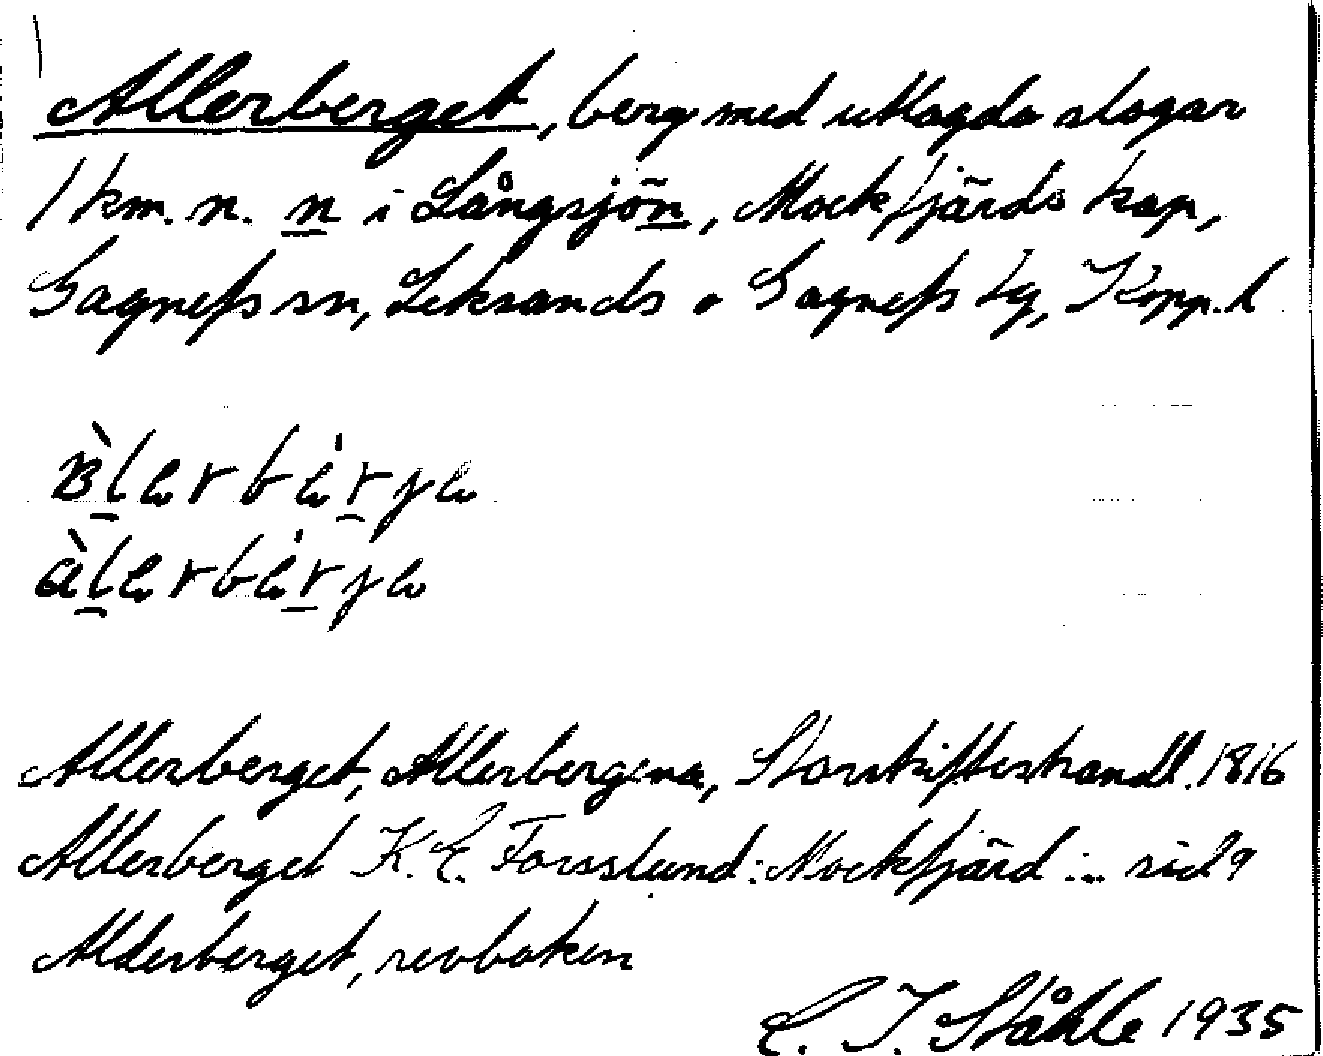 Allerberget, berg med utlagda slogar
1 km. n. n i Långsjön, Mockfjärds kap,
Gagnefs sn, Leksands o Gagnefs tg, Kopp. l
Allerberget, Allerbergena, Storskifteshandl. 1816
Allerberget K. E. Forsslund: Mockfjärd ... sid 9
Alderberget, revboken
E. I. Ståhle 1935